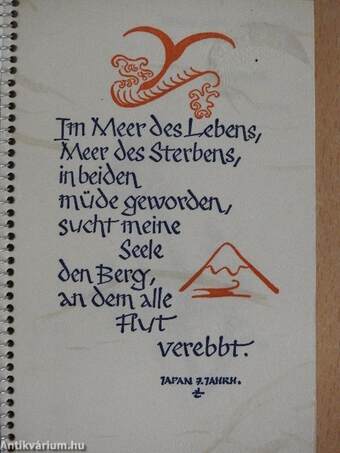 Im Meer des Lebens,
Meer des Sterbens,
in beiden
müde geworden,
sucht meine
Seele
den Berg,
an dem alle
Flut
verebbt.
JAPAN 7. JAHRH.
Antikvárium.hu